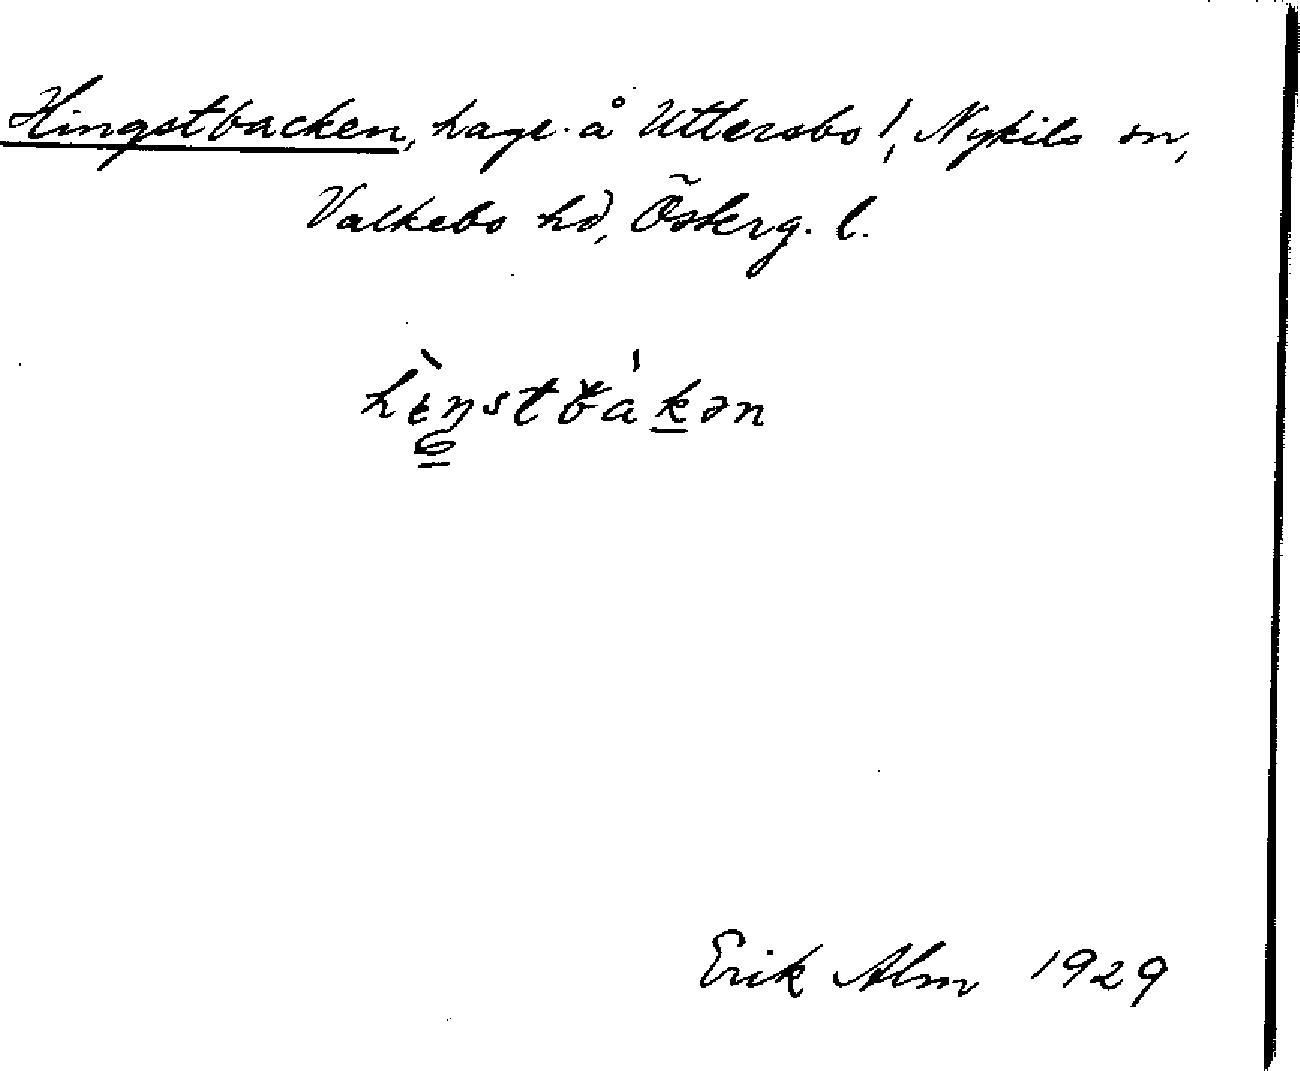 Hingstbacken, hage å Uttersbo!, Nykils sn,
Valkebo hd, Österg. l.
Erik Alm 1929